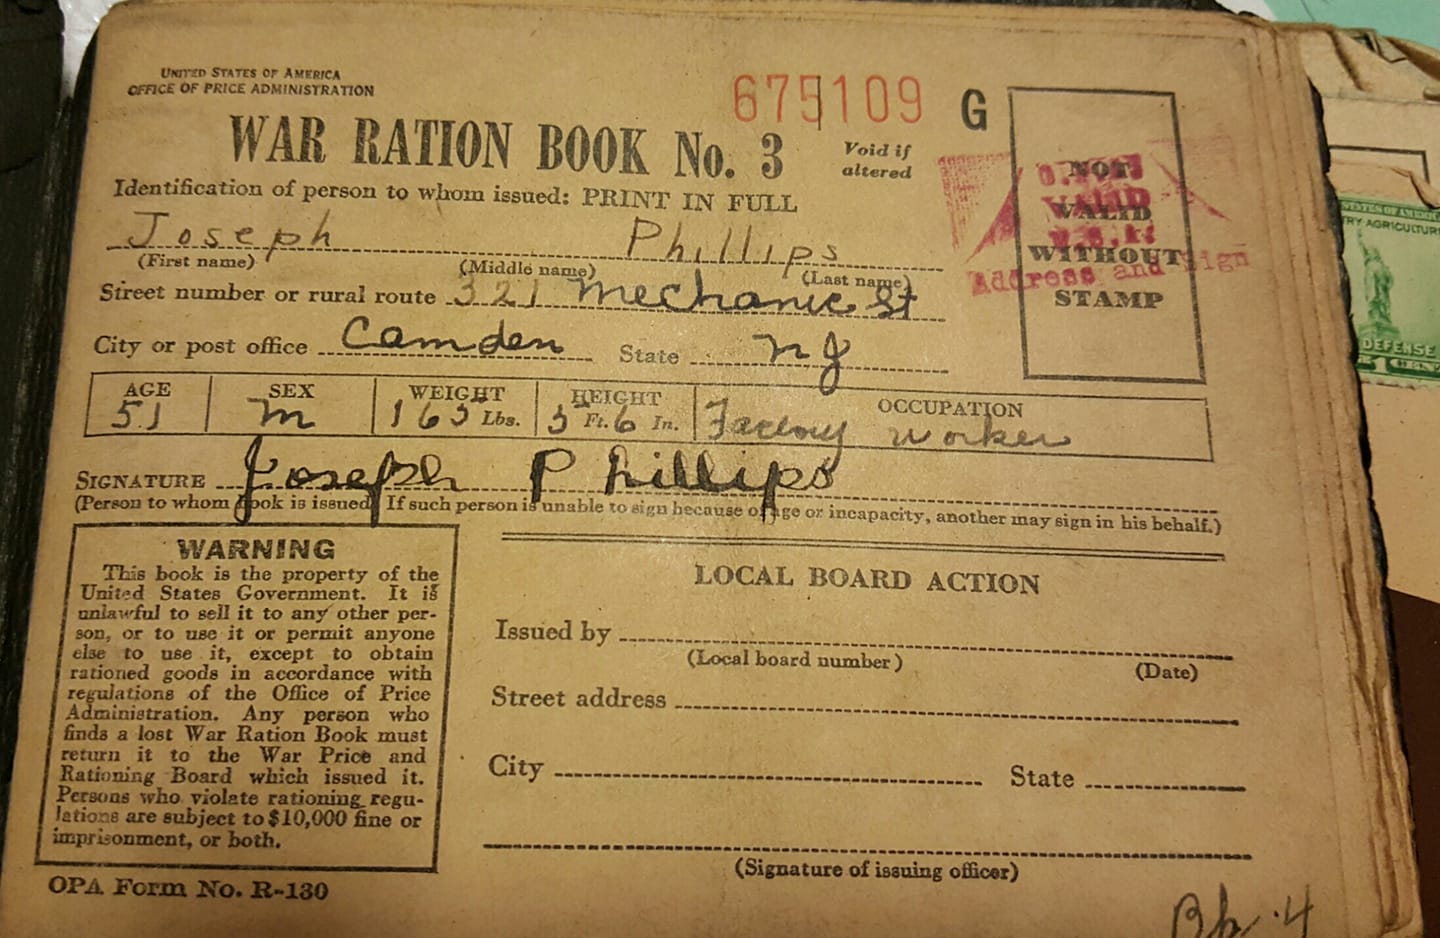 UNITED STATES OF AMERICA
OFFICE OF PRICE ADMINISTRATION
675109 G
WAR RATION BOOK No. 3
Void if
altered
Identification of person to whom issued: PRINT IN FULL
Joseph Phillips
(First name) (Middle name) (Last name)
Street number or rural route 321 Mechanic St
City or post office Camden State NJ
NOT
VALID
WITHOUT
STAMP
VALID
Address and Sign
AGE SEX WEIGHT HEIGHT OCCUPATION
51 M 165 Lbs. 5 Ft. 6 In. Factory Worker
SIGNATURE Joseph Phillips
(Person to whom book is issued. If such person is unable to sign because of age or incapacity, another may sign in his behalf.)
WARNING
This book is the property of the
United States Government. It is
unlawful to sell it to any other per-
son, or to use it or permit anyone
else to use it, except to obtain
rationed goods in accordance with
regulations of the Office of Price
Administration. Any person who
finds a lost War Ration Book must
return it to the War Price and
Rationing Board which issued it.
Persons who violate rationing regu-
lations are subject to $10,000 fine or
imprisonment, or both.
LOCAL BOARD ACTION
Issued by
(Local board number) (Date)
Street address
City State
(Signature of issuing officer)
OPA Form No. R-130
Bk. 4
STATES OF AMERICA
TRY AGRICULTURE
DEFENSE
1 CENT